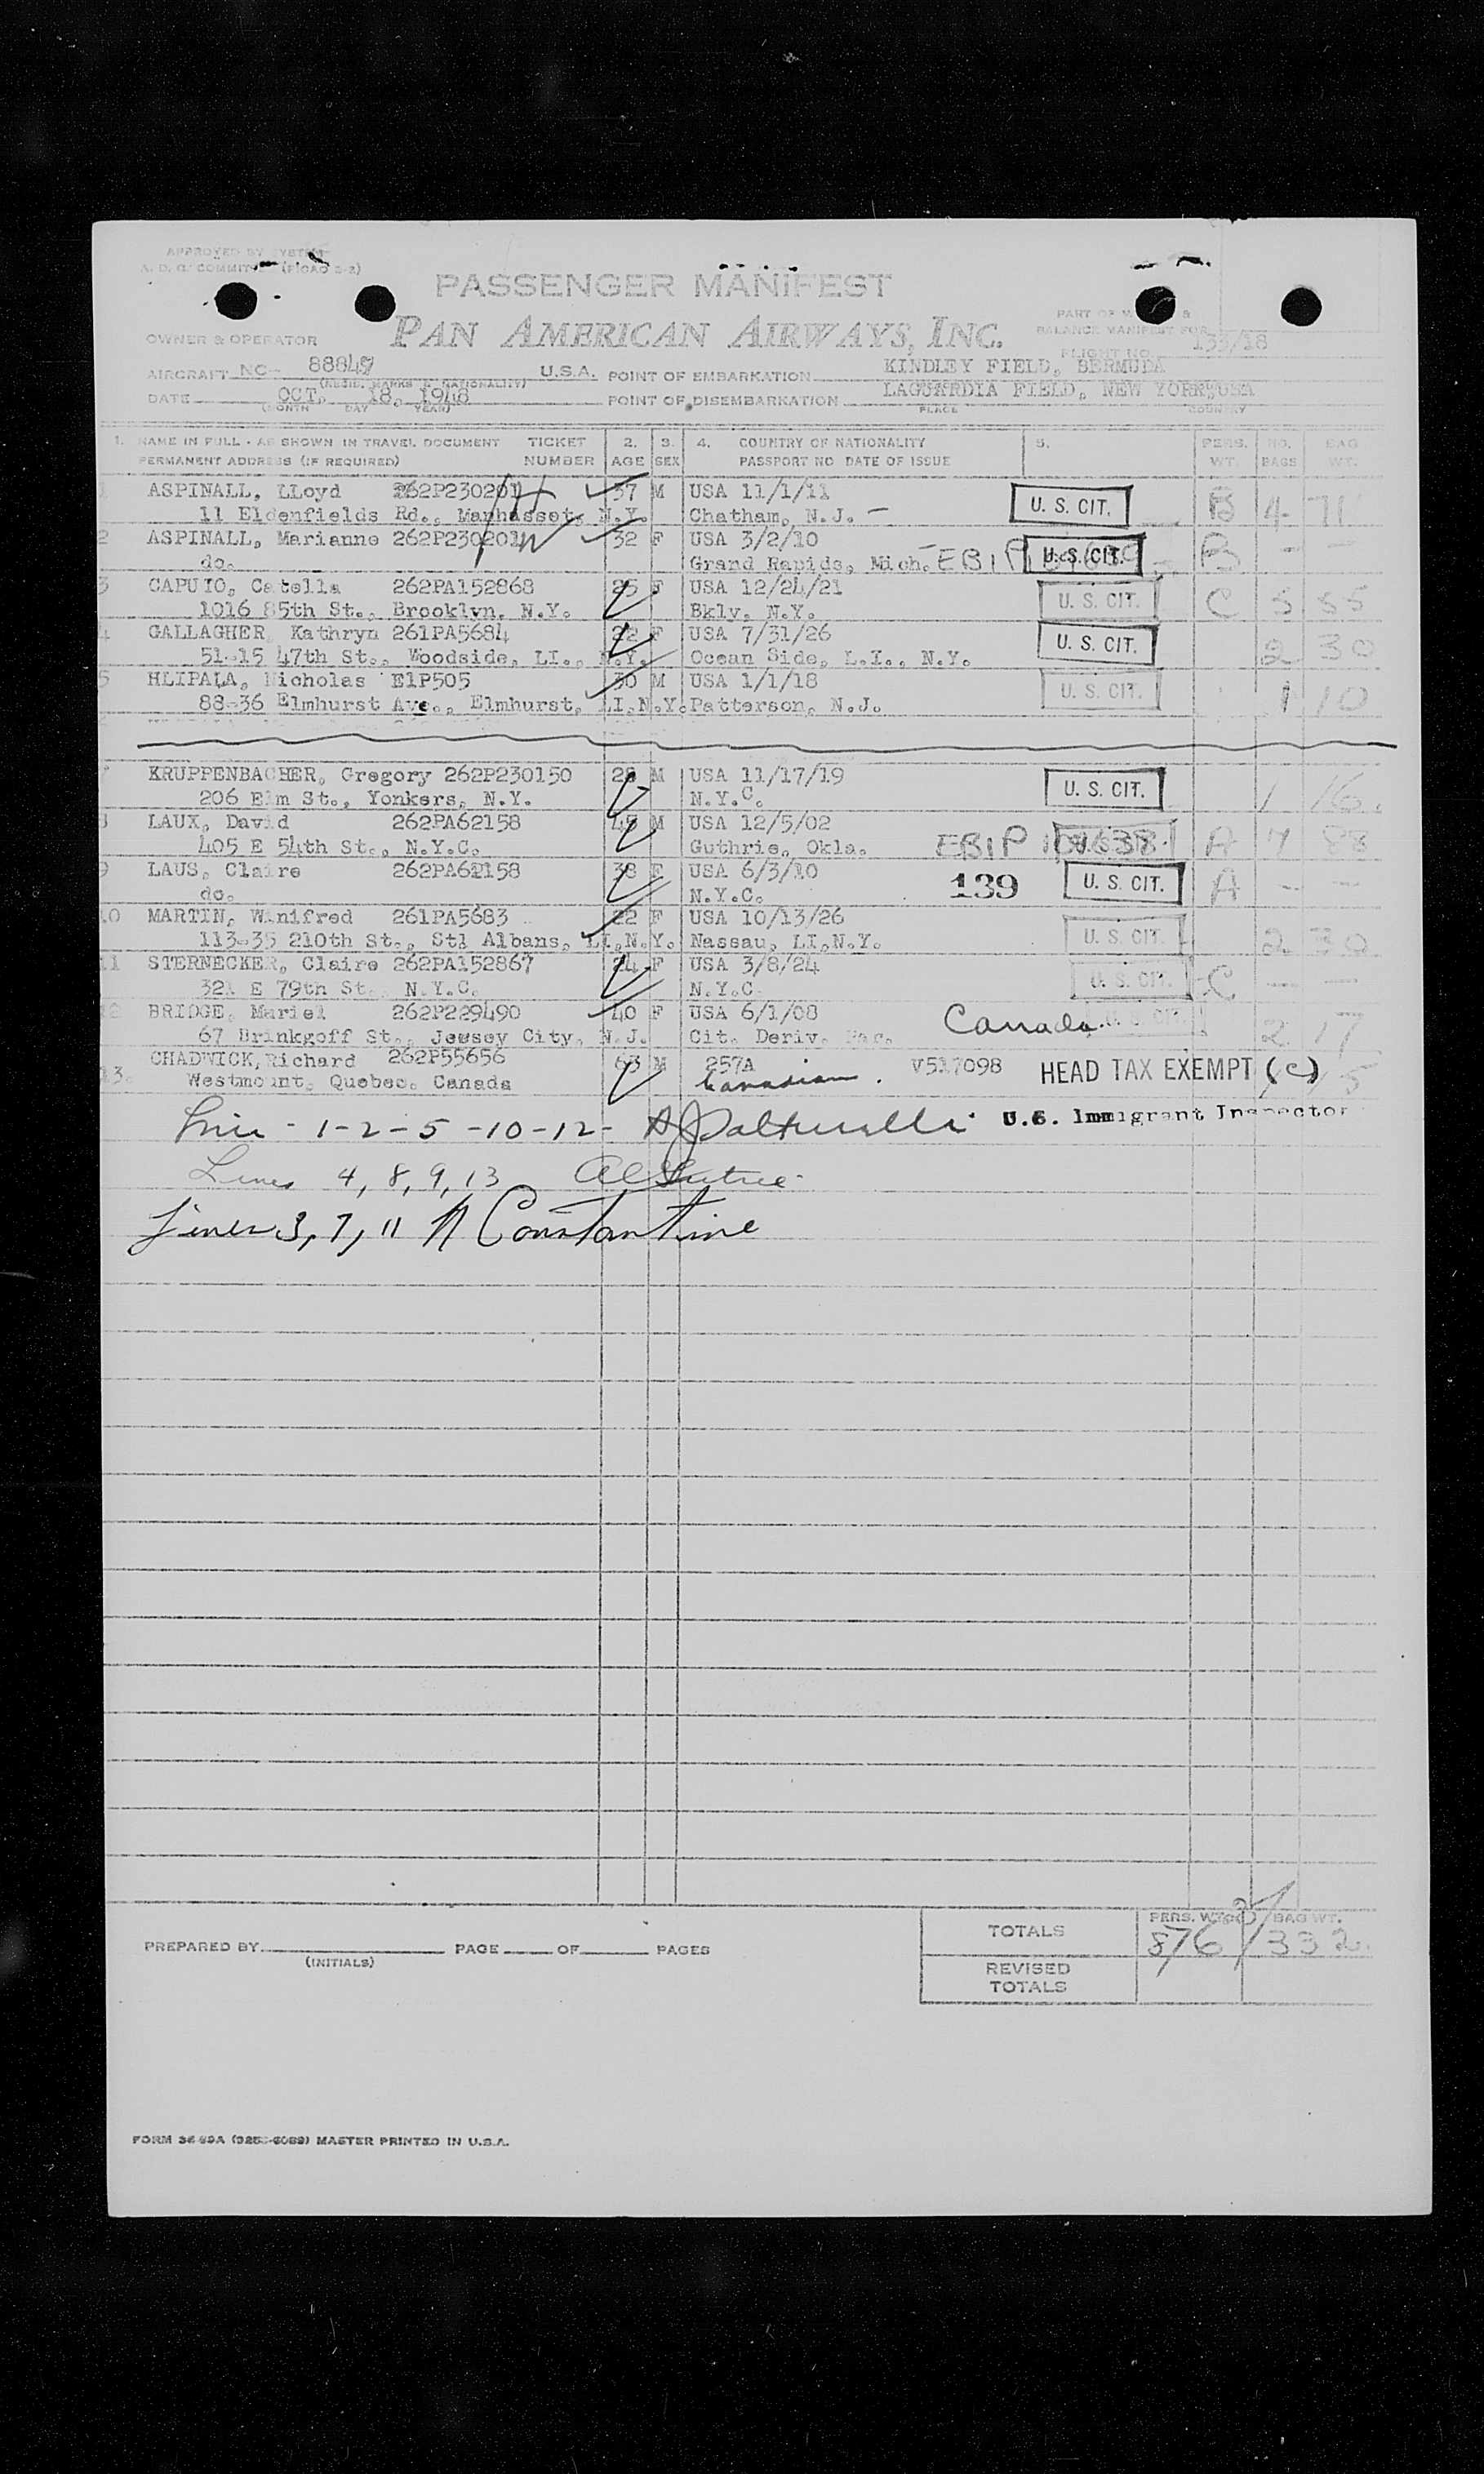 APPROVED BY
A. D. C. COMMIT
PASSENGER MANIFEST
OWNER & OPERATOR
PAN AMERICAN AIRWAYS, INC.
PART OF &
BALANCE MANIFEST FOR
FLIGHT NO. 133/18
AIRCRAFT NC- 88847 U.S.A. POINT OF EMBARKATION KINDLEY FIELD, BERMUDA
DATE OCT. 18, 1948 POINT OF DISEMBARKATION LAGUARDIA FIELD, NEW YORK, USA
(MONTH DAY YEAR) PLACE COUNTRY
1. NAME IN FULL - AS SHOWN IN TRAVEL DOCUMENT TICKET 2. 3. 4. COUNTRY OF NATIONALITY 5. PERS. NO. BAG
PERMANENT ADDRESS (IF REQUIRED) NUMBER AGE SEX PASSPORT NO DATE OF ISSUE WT. BAGS WT.
1 ASPINALL, LLoyd 262P230201 H 37 M USA 11/1/11 U. S. CIT. B 4 71
11 Eldenfields Rd., Manhasset, N.Y. Chatham, N.J. -
2 ASPINALL, Marianne 262P230201 W 32 F USA 3/2/10 U. S. CIT. B - -
do. Grand Rapids, Mich. EBIP
3 CAPUTO, Catella 262PA152868 25 F USA 12/24/21 U. S. CIT. C 5 55
1016 85th St., Brooklyn, N.Y. Bkly, N.Y.
4 GALLAGHER, Kathryn 261PA5684 22 F USA 7/31/26 U. S. CIT. 2 30
51-15 47th St., Woodside, LI., N.Y. Ocean Side, L.I., N.Y.
5 HLIPALA, Nicholas E1P505 30 M USA 1/1/18 U. S. CIT. 1 10
88-36 Elmhurst Ave., Elmhurst, LI,N.Y. Patterson, N.J.
KRUPPENBACHER, Gregory 262P230150 28 M USA 11/17/19 U. S. CIT. 1 16.
206 Elm St., Yonkers, N.Y. N.Y.C.
LAUX, David 262PA62158 45 M USA 12/5/02 A 7 88
405 E 54th St., N.Y.C. Guthrie, Okla. EBIP
9 LAUS, Claire 262PA62158 38 F USA 6/3/10 139 U. S. CIT. A - -
do. N.Y.C.
10 MARTIN, Winifred 261PA5683 22 F USA 10/13/26 U. S. CIT. 2 30
113-35 210th St., Stl Albans, LI,N.Y. Nassau, LI,N.Y.
11 STERNECKER, Claire 262PA152867 24 F USA 3/8/24 U. S. CIT. C - -
321 E 79th St. N.Y.C. N.Y.C.
12 BRIDGE, Mariel 262P229490 40 F USA 6/1/08 Canada. U. S. CIT. 2 17
67 Brinkgoff St., Jessey City, N.J. Cit. Deriv.
CHADWICK, Richard 262P55656 63 M 257A V517098 HEAD TAX EXEMPT (C)
13. Westmount, Quebec. Canada Canadian.
Line - 1-2-5-10-12- U.S. Immigrant Inspector
Lines 4, 8, 9, 13
Lines 3, 7, 11 A Constantine
TOTALS PERS. WT. 876 BAG WT. 332
PREPARED BY (INITIALS) PAGE OF PAGES
REVISED
TOTALS
MASTER PRINTED IN U.S.A.